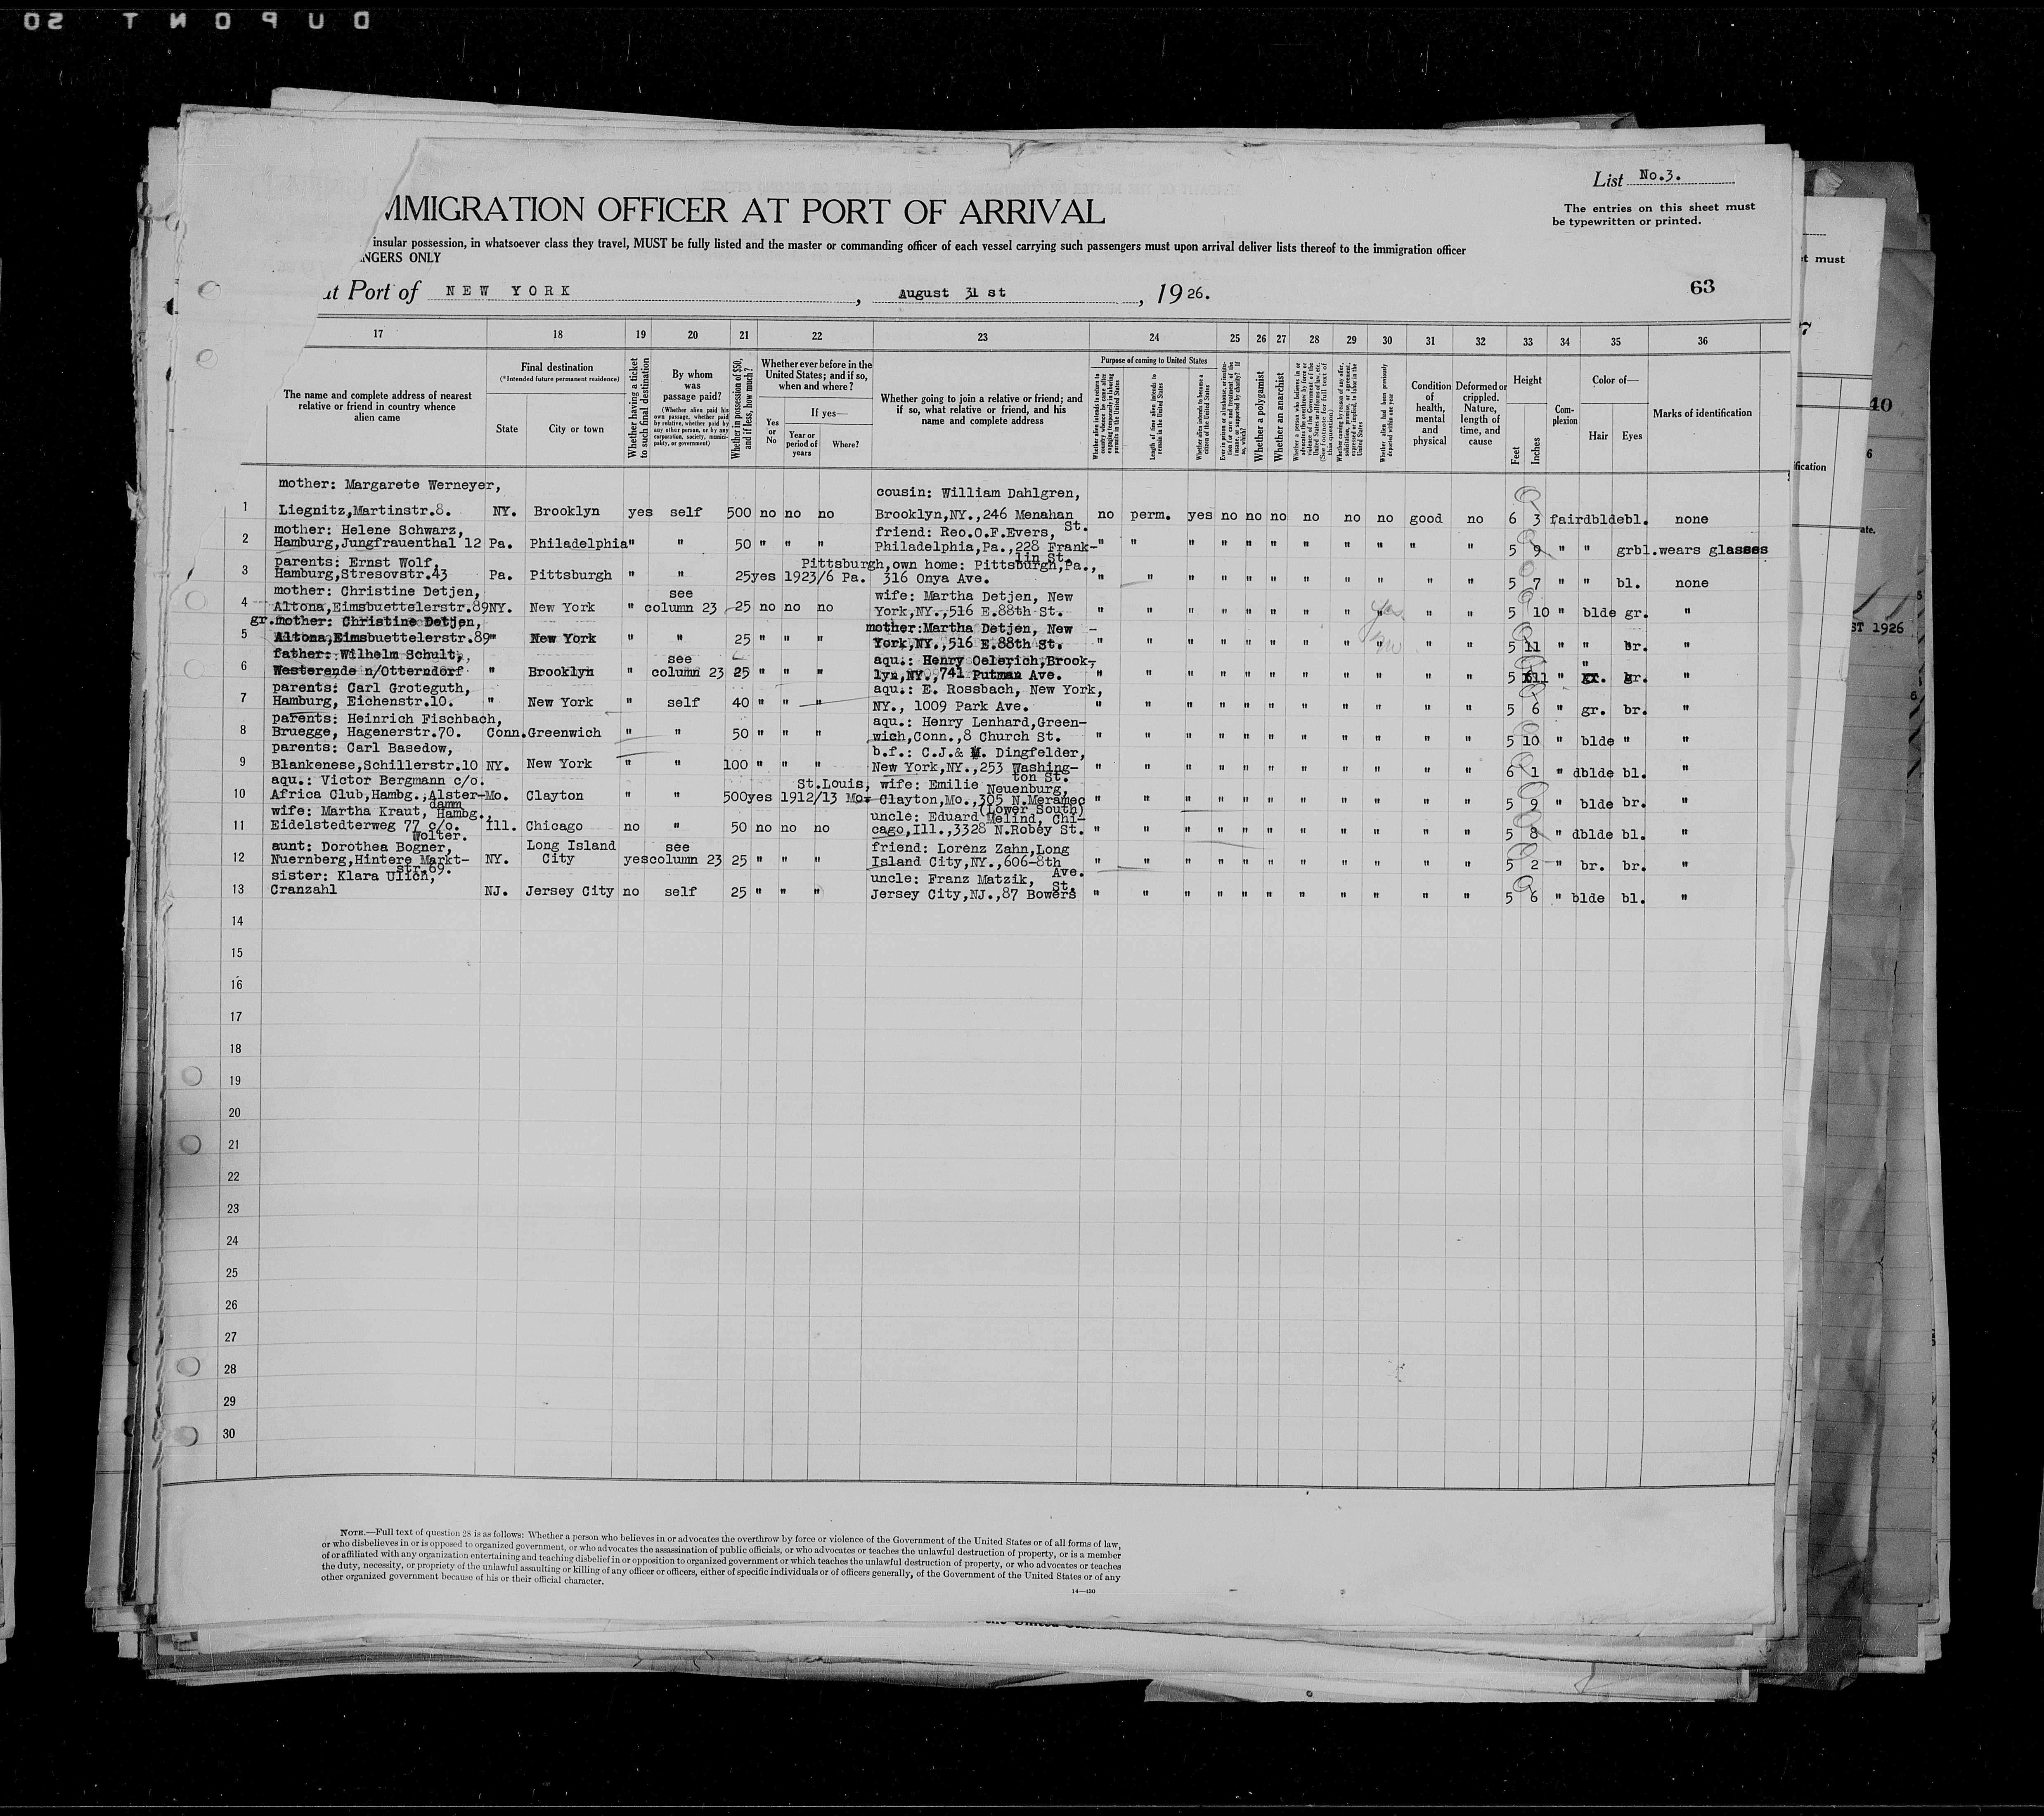 DUPONT SO
List No.3.
MMIGRATION OFFICER AT PORT OF ARRIVAL
The entries on this sheet must
be typewritten or printed.
insular possession, in whatsoever class they travel, MUST be fully listed and the master or commanding officer of each vessel carrying such passengers must upon arrival deliver lists thereof to the immigration officer
NGERS ONLY
at Port of NEW YORK, August 31 st, 1926.
63
17 18 19 20 21 22 23 24 25 26 27 28 29 30 31 32 33 34 35 36
The name and complete address of nearest
relative or friend in country whence
alien came
Final destination
(*Intended future permanent residence)
State
City or town
Whether having a ticket
to such final destination
By whom
was
passage paid?
(Whether alien paid his
own passage, whether paid
by relative, whether paid by
any other person, or by any
corporation, society, munici-
pality, or government)
Whether in possession of $50,
and if less, how much?
Whether ever before in the
United States; and if so,
when and where?
Yes
or
No
If yes—
Year or
period of
years
Where?
Whether going to join a relative or friend; and
if so, what relative or friend, and his
name and complete address
Purpose of coming to United States
Whether alien intends to return to
country whence he came after
engaging temporarily in laboring
pursuits in the United States
Length of time alien intends to
remain in the United States
Whether alien intends to become a
citizen of the United States
Ever in prison or almshouse, or institu-
tion for care and treatment of the
insane, or supported by charity? If
so, which?
Whether a polygamist
Whether an anarchist
Whether a person who believes in or
advocates the overthrow by force or
violence of the Government of the
United States or all forms of law, etc.
(See footnote for full text of
this question)
Whether coming by reason of any offer,
solicitation, promise, or agreement,
expressed or implied, to labor in the
United States
Whether alien had been previously
deported within one year
Condition
of
health,
mental
and
physical
Deformed or
crippled.
Nature,
length of
time, and
cause
Height
Feet
Inches
Com-
plexion
Color of—
Hair
Eyes
Marks of identification
mother: Margarete Werneyer, cousin: William Dahlgren,
1 Liegnitz,Martinstr.8. NY. Brooklyn yes self 500 no no no Brooklyn,NY.,246 Menahan St. no perm. yes no no no no no no good no 6 3 fair dblde bl. none
mother: Helene Schwarz, friend: Reo.O.F.Evers,
2 Hamburg,Jungfrauenthal 12 Pa. Philadelphia " " 50 " " " Philadelphia,Pa.,228 Frank-lin St. " " " " " " " " " " " 5 9 " " grbl. wears glasses
parents: Ernst Wolf, Pittsburgh, own home: Pittsburgh,Pa.,
3 Hamburg,Stresovstr.43 Pa. Pittsburgh " " 25 yes 1923/6 Pa. 316 Onya Ave. " " " " " " " " " " " 5 7 " " bl. none
mother: Christine Detjen, see wife: Martha Detjen, New
4 Altona,Eimsbuettelerstr.89 NY. New York " column 23 25 no no no York,NY.,516 E.88th St. " " " " " " " " " " " 5 10 " blde gr. "
yes
gr.mother: Christine Detjen, mother:Martha Detjen, New
5 Altona,Eimsbuettelerstr.89 " New York " " 25 " " " York,NY.,516 E.88th St. " " " " " " " " " " " 5 11 " " br. "
no
father: Wilhelm Schult, see aqu.: Henry Oelerich,Brook-
6 Westerende n/Otterndorf " Brooklyn " column 23 25 " " " lyn,NY.,741 Putman Ave. " " " " " " " " " " " 5 11 " " gr. "
parents: Carl Groteguth, aqu.: E. Rossbach, New York,
7 Hamburg, Eichenstr.10. " New York " self 40 " " " NY., 1009 Park Ave. " " " " " " " " " " " 5 6 " gr. br. "
parents: Heinrich Fischbach, aqu.: Henry Lenhard,Green-
8 Bruegge, Hagenerstr.70. Conn. Greenwich " " 50 " " " wich,Conn.,8 Church St. " " " " " " " " " " " 5 10 " blde " "
parents: Carl Basedow, b.f.: C.J.& M. Dingfelder,
9 Blankenese,Schillerstr.10 NY. New York " " 100 " " " New York,NY.,253 Washing-ton St. " " " " " " " " " " " 6 1 " dblde bl. "
aqu.: Victor Bergmann c/o. St.Louis, wife: Emilie Neuenburg,
10 Africa Club,Hambg.,Alster-damm Mo. Clayton " " 500 yes 1912/13 Mo. Clayton,Mo.,305 N.Meramec (Lower South) " " " " " " " " " " " 5 9 " blde br. "
wife: Martha Kraut, Hambg., uncle: Eduard Melind, Chi-
11 Eidelstedterweg 77 c/o. Wolter. Ill. Chicago no " 50 no no no cago,Ill.,3328 N.Robey St. " " " " " " " " " " " 5 8 " dblde bl. "
aunt: Dorothea Bogner, Long Island see friend: Lorenz Zahn,Long
12 Nuernberg,Hintere Markt-str.69. NY. City yes column 23 25 " " " Island City,NY.,606-8th Ave. " " " " " " " " " " " 5 2 " br. br. "
sister: Klara Ulich, uncle: Franz Matzik,
13 Cranzahl NJ. Jersey City no self 25 " " " Jersey City,NJ.,87 Bowers St. " " " " " " " " " " " 5 6 " blde bl. "
14
15
16
17
18
19
20
21
22
23
24
25
26
27
28
29
30
NOTE.—Full text of question 28 is as follows: Whether a person who believes in or advocates the overthrow by force or violence of the Government of the United States or of all forms of law,
or who disbelieves in or is opposed to organized government, or who advocates the assassination of public officials, or who advocates or teaches the unlawful destruction of property, or is a member
of or affiliated with any organization entertaining and teaching disbelief in or opposition to organized government or which teaches the unlawful destruction of property, or who advocates or teaches
the duty, necessity, or propriety of the unlawful assaulting or killing of any officer or officers, either of specific individuals or of officers generally, of the Government of the United States or of any
other organized government because of his or their official character.
14—430
t must
40
ification
ate.
ST 1926